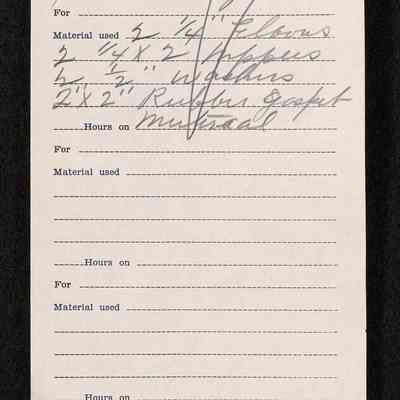 For
Material used 2 1/4" Elbows
2 1/4 X 2" nippers
2 1/2" Washers
2" X 2" Rubber Gasket
Hours on
For
Material used
Hours on
For
Material used
Hours on